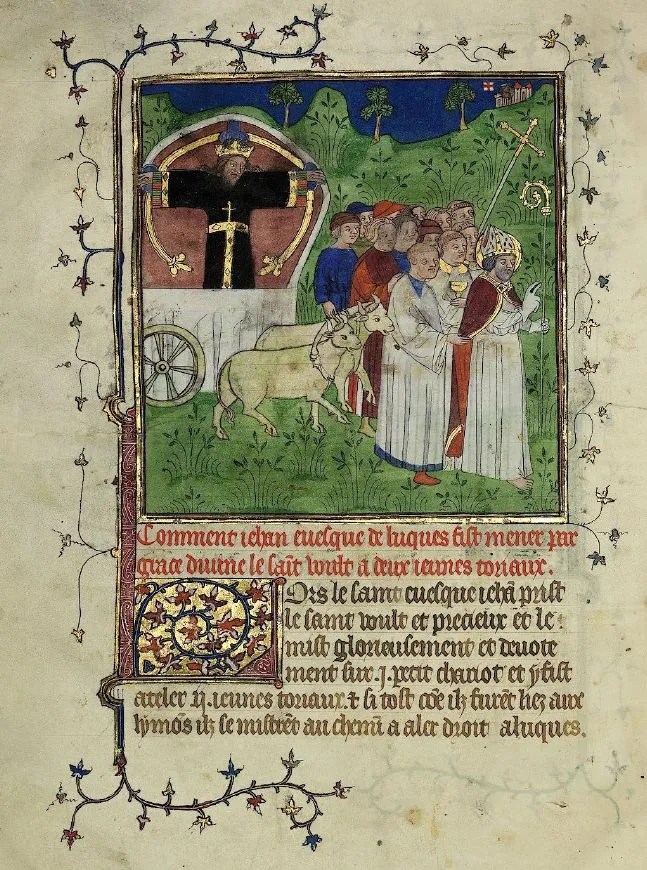 Comment iehan euesque de luques fist mener par
grace diuine le saīt voult a deux ieunes toriaux.
Ors le saint euesque iehā prist
le saint voult et precieux et le
mist glorieusement et deuote
ment sur .j. petit chariot et y fist
ateler .ij. ieunes toriaux. ⁊ si tost cōe ilz furēt liez aux
lymōs ilz se mistrēt au chemī a aler droit a luques.